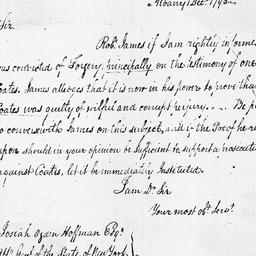 Albany Dec. 1795
Sir.
Robt. James if I am rightly informed
was convicted of Forgery, principally on the testimony of one
Coates. James alledges that it is now in his power to prove that
Coates was guilty of wilful and corrupt perjury. Be pl
to converse with James on this subject, and if the Proof he re
upon should in your opinion be sufficient to support a prosecution
against Coates, let it be immediately Instituted.
I am Dr Sir
Your most obt. Servt.
Josiah Ogden Hoffman Esqr.
Atty Genl of the State of New York